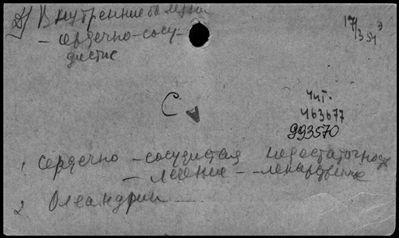 Внутренние
– сердечно-сосу-
дистые
17/3 54
С
Чит.
463677
993570
1. Сердечно-сосудистая недостаточность
– лечение –
2. Олеандрин